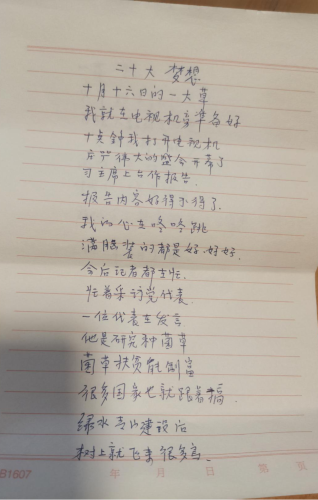 二十大 梦想
十月十六日的一大早
我就在电视机旁准备好
十点钟我打开电视机
庆贺伟大的盛会开幕了
习主席上台作报告.
报告内容好得不得了.
我的心在咚咚跳
满脑装的都是好.好好.
会后记者都在忙.
忙着采访党代表.
一位代表在发言
他是研究种菌草
菌草扶贫能创富
很多国家也就跟着福.
绿水青山建设后
树上就飞来很多鸟.
B1607 年 月 日 第 页